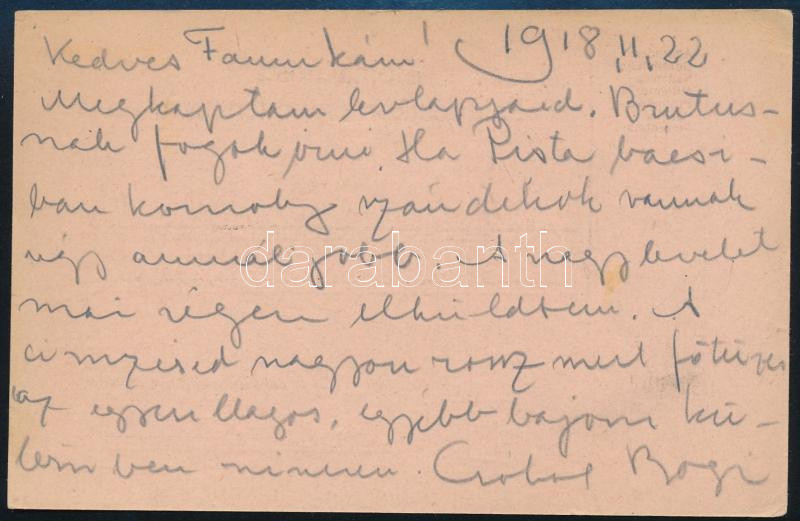 Kedves Fannikám! 1918, II, 22
Megkaptam levlapjaid. Brutus-
nak fogok irni. Ha Pista bácsi-
ban komoly szándékok vannak
úgy annál jobb. A nagy levelet
már régen elküldtem. A
cimzésed nagyon rossz mert
az egyenllagos, egyébb bajom kü-
lömben nincsen. Csókol Bogi
darabanth